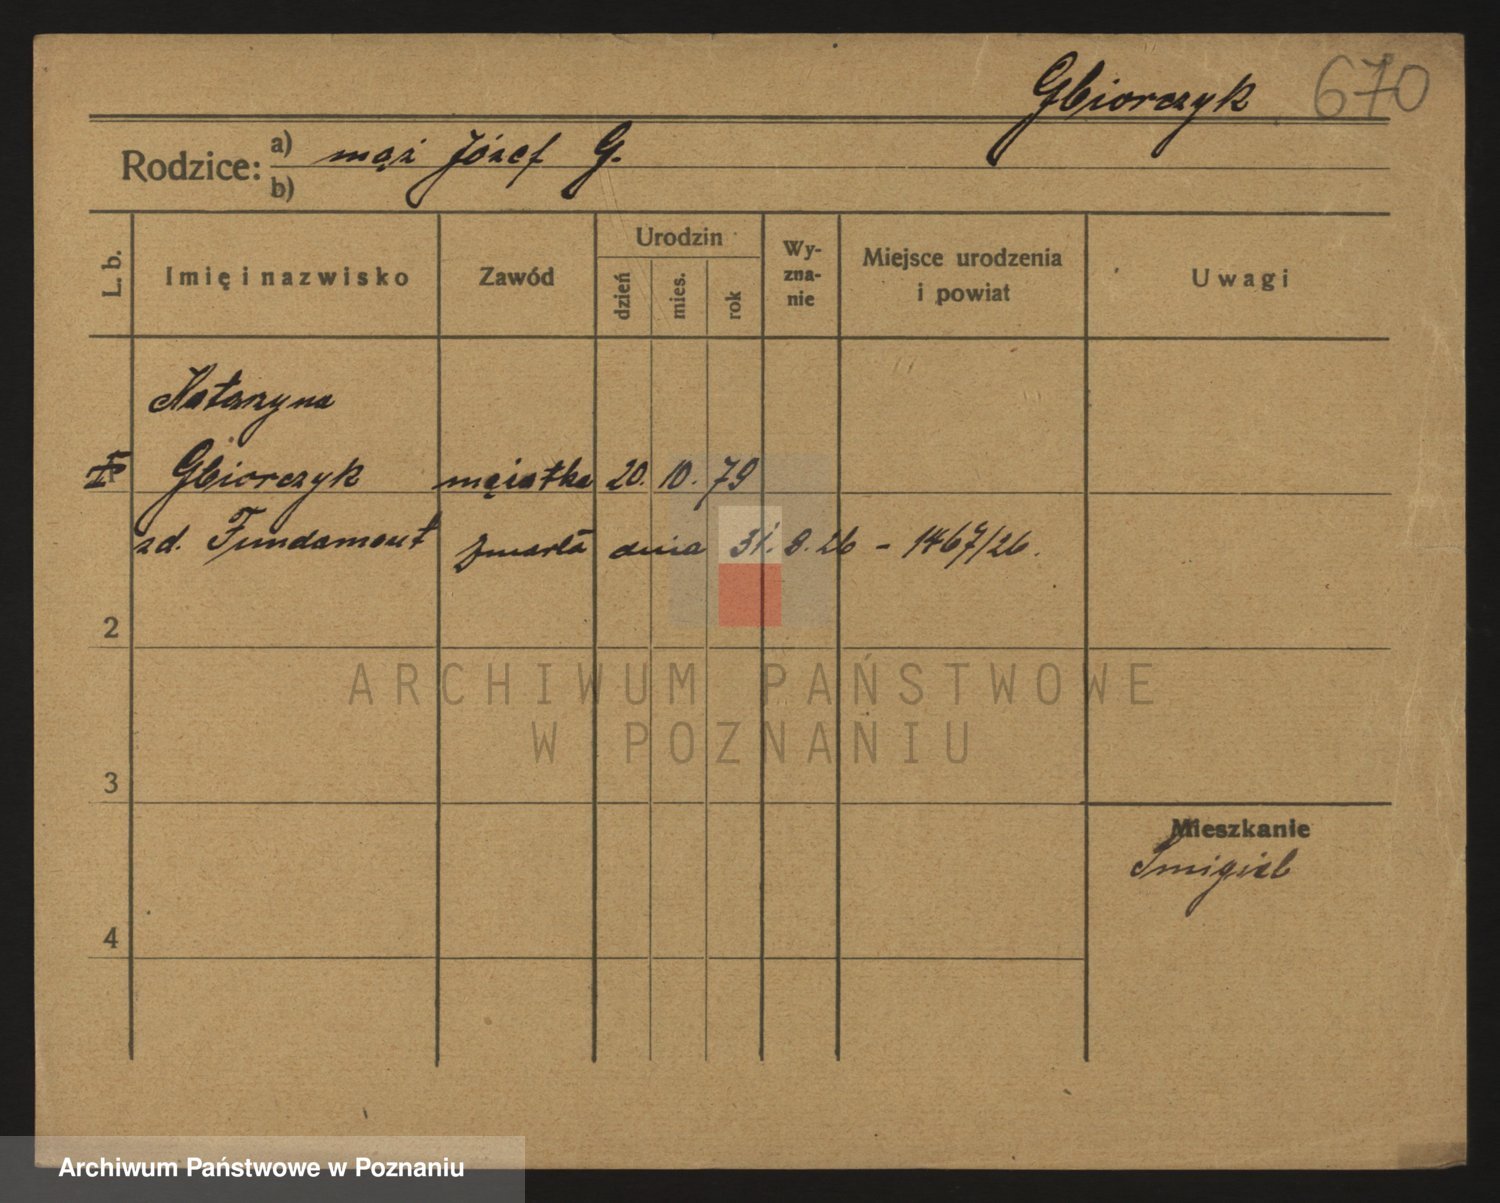 Gbiorczyk 670
Rodzice: a) mąż Józef G.
b)
L. b.
Imię i nazwisko
Zawód
Urodzin
dzień
mies.
rok
Wy-
zna-
nie
Miejsce urodzenia
i powiat
Uwagi
Katarzyna
Gbiorczyk mężatka 20. 10. 79
zd. Fundament zmarła dnia 31. 8. 26 - 1467/26.
2
ARCHIWUM PAŃSTWOWE
W POZNANIU
3
Mieszkanie
Śmigiel
4
Archiwum Państwowe w Poznaniu